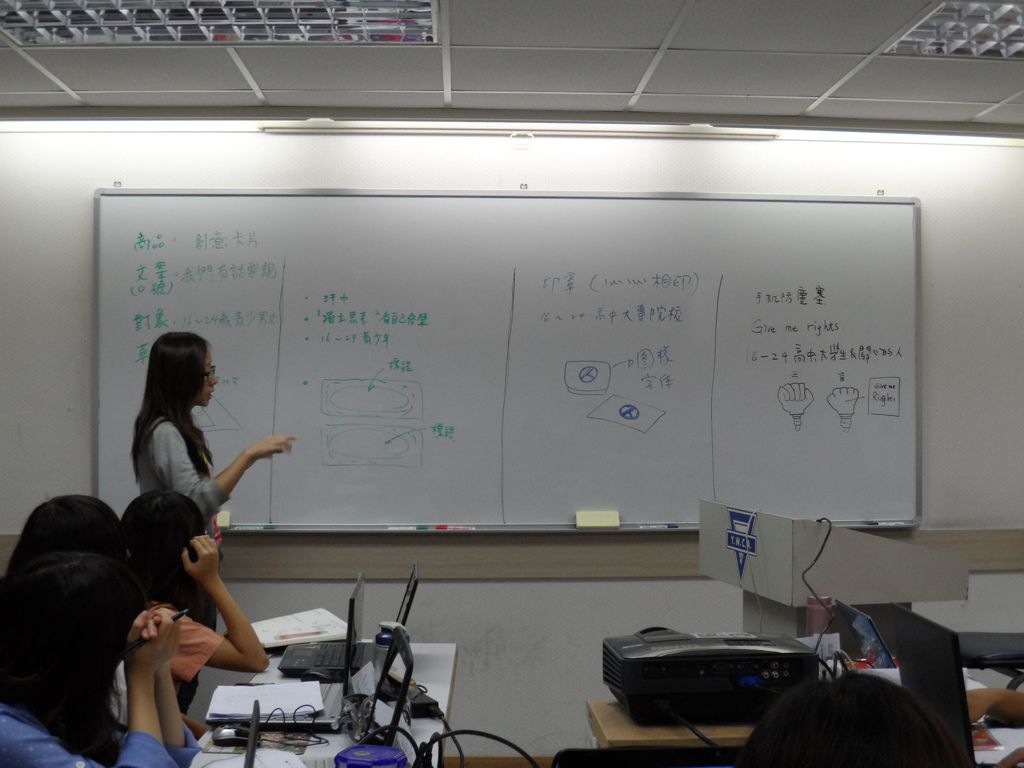 商品: 創意卡片
文案: 我們有話要說
(口號)
對象: 16~24歲青少男女
汗巾
獨立思考
16~24 青少年
標語
標語
印章 (相印)
16~24 高中大專院校
圖樣
字体
手机防塵塞
Give me rights
16-24 高中大學生&關心的人
Give me
Rights
Y.W.C.A.